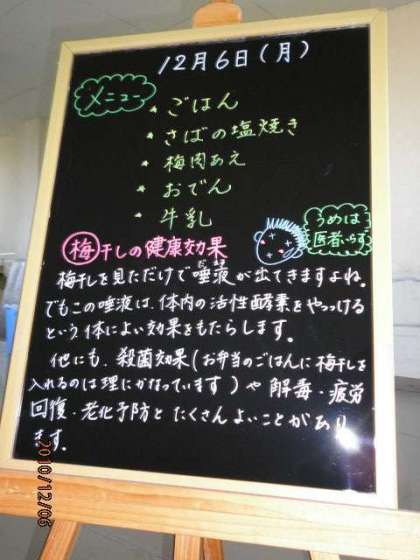 12月6日(月)
メニュー
* ごはん
* さばの塩焼き
* 梅肉あえ
* おでん
* 牛乳
うめは
医者いらず
梅干しの健康効果
梅干しを見ただけで唾液が出てきますよね。
でもこの唾液は、体内の活性酵素をやっつける
という体によい効果をもたらします。
他にも、殺菌効果(お弁当のごはんに梅干しを
入れるのは理にかなっています)や解毒・疲労
回復・老化予防とたくさんよいことがあり
ます。
2010/12/06